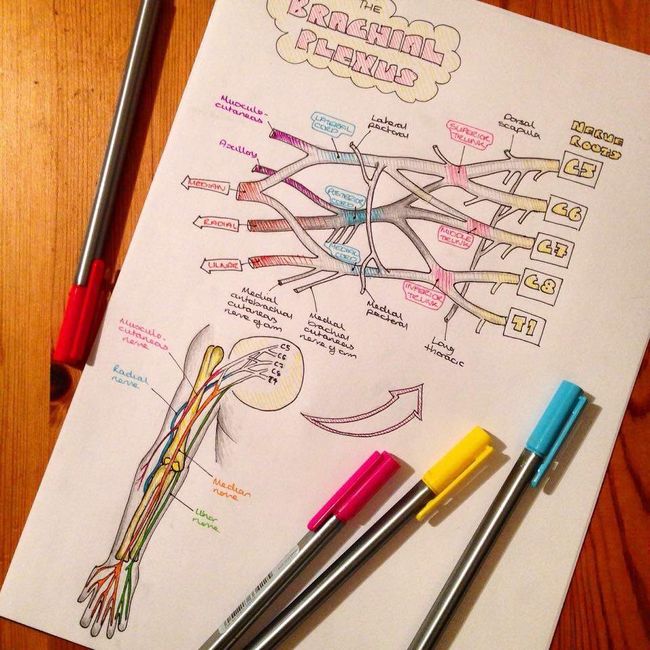 THE
BRACHIAL
PLEXUS
Musculo-
cutaneas
LATERAL
CORD
Lateral
pectoral
SUPERIOR
TRUNK
Dorsal
scapula
NERVE
ROOTS
C5
Axillary
MEDIAN
POSTERIOR
CORD
C6
RADIAL
MIDDLE
TRUNK
C7
ULNAR
MEDIAL
CORD
C8
INFERIOR
TRUNK
T1
Medial
antebrachial
cutaneas
nerve of arm
Medial
brachial
cutaneas
nerve of arm
Medial
pectoral
Long
thoracic
Musculo-
cutaneas
nerve
Radial
nerve
C5
C6
C7
C8
Median
nerve
Ulnar
nerve